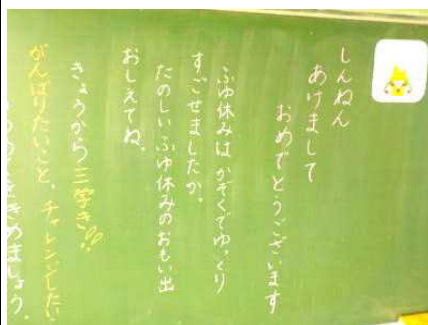 しんねん
あけまして
おめでとうございます
ふゆ休みはかぞくでゆっくり
すごせましたか。
たのしいふゆ休みのおもい出
おしえてね。
きょうから三学き!!
がんばりたいこと、チャレンジしたい
をきめましょう。